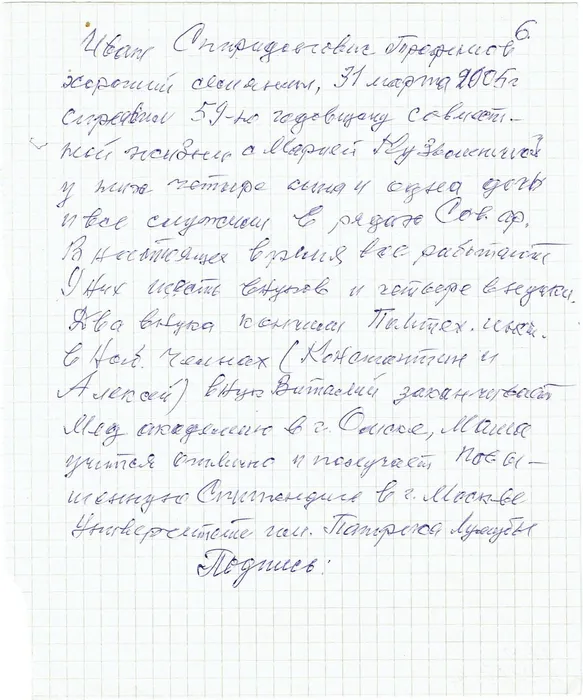 6
Иван Спиридонович Трофимов
хороший семьянин, 31 марта 2005 г
справили 59-ю годовщину совмест-
ной жизни с Марией Кузьминичной
у них четыре сына и одна дочь
и все служили в рядах Сов. ар.
В настоящее время все работают
У них шесть внуков и четверо внучки.
Два внука кончили Политех. инст.
в Наб. Челнах (Константин и
Алексей) внук Виталий заканчивает
Мед академию в г. Омске, Маша
учится отлично и получает повы-
шенную Стипендию в г. Москве
Университете им. Патриса Лумумбы
Подпись: